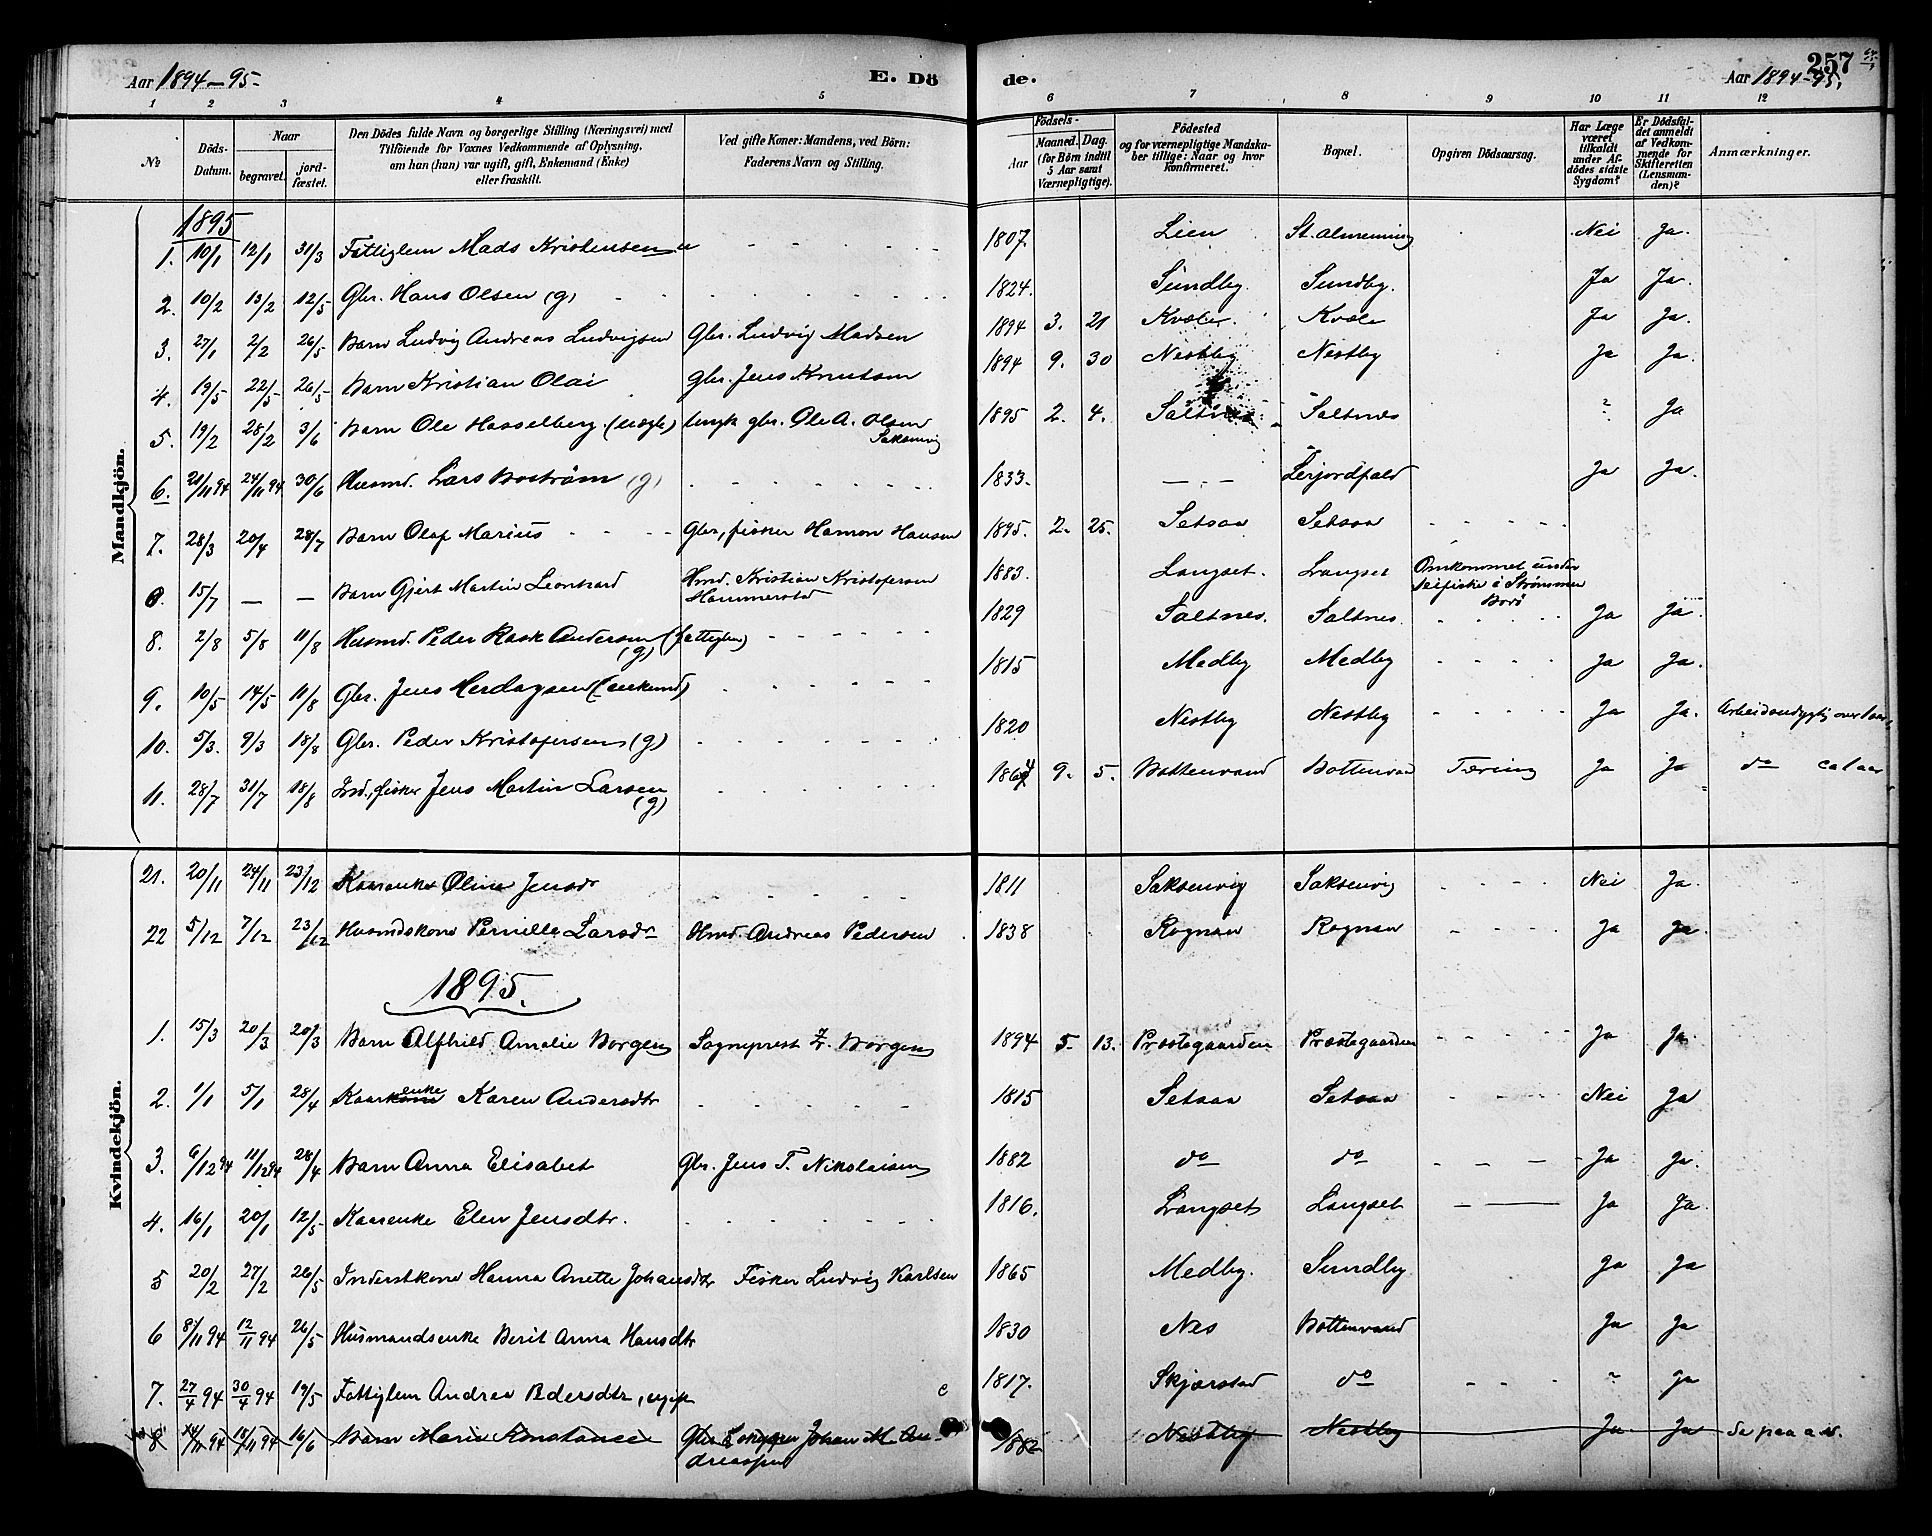 Aar 1894-95. E. Dö de. Aar 1894-95. 257
1 2 3 4 5 6 7 8 9 10 11 12
No
Döds-Datum.
Naar
begravet.
jordfæstet.
Den Dödes fulde Navn og borgerlige Stilling (Næringsvei) med
Tilföiende for Voxnes Vedkommende af Oplysning,
om han (hun) var ugift, gift, Enkemand (Enke)
eller fraskilt.
Ved gifte Koner: Mandens, ved Börn:
Faderens Navn og Stilling.
Födsels-
Aar
Maaned. Dag.
(for Börn indtil
5 Aar samt
Værnepligtige).
Födested
og for værnepligtige Mandska-
ber tillige: Naar og hvor
konfirmeret.
Bopæl.
Opgiven Dödsaarsag.
Har Læge
været
tilkaldt
under Af-
dödes sidste
Sygdom?
Er Dödsfal-
det anmeldt
af Vedkom-
mende for
Skifteretten
(Lensman-
den)?
Anmærkninger.
Mandkjön.
1895
1. 10/1 12/1 31/3 Fattiglem Mads Kristensen u 1807. Lien St. almenning Nei Ja.
2. 10/2 13/2 12/5 Gbr. Hans Olsen (g) 1824. Sundby. Sundby. Ja Ja.
3. 27/1 2/2 26/5 Barn Ludvig Andreas Ludvigsen Gbr. Ludvig Madsen 1894 3. 21 Kvæle. Kvæle Ja Ja.
4. 19/5 22/5 26/5 Barn Kristian Olai Gbr. Jens Knutsen 1894 9. 30 Nestby Nestby Ja Ja.
5. 19/2 28/2 3/6 Barn Ole Hasselberg (uægte) Ungk gbr. Ole A. Olsen Saksenvig 1895 2. 4. Saltnes Saltnes ? Ja
6. 21/11 94 24/11 94 30/6 Husmd. Lars Boström (g) 1833. — Leijordfald Ja Ja.
7. 28/3 20/4 28/7 Barn Olaf Marius Gbr, fisker Hamon Hansen 1895. 2. 25. Setsaa Setsaa
0. 15/7 — — Barn Gjert Martin Leonhard Hmd. Kristian Kristofersen Hammerstad 1883. Langset. Langset Omkommet under seifiske i Strømmen Bodö
8. 2/8 5/8 11/8 Husmd. Peder Rask Andersen (fattiglem) (g) 1829 Saltnes. Saltnes. Ja Ja.
9. 10/5 14/5 11/8 Gbr. Jens Herdagsen (enkemd) 1815 Medby Medby Ja Ja.
10. 5/3. 9/3 18/8 Gbr. Peder Kristofersen (g) 1820 Nestby Nestby Ja Ja. Arbeidsudygtig over 1 aar
11. 28/7 31/7 18/8 Ind., fisker Jens Martin Larsen (g) 1864 9. 5. Bottenvand Bottenvand Tæring Ja Ja do ca 1 aar
Kvindekjön.
21. 20/11 24/11 23/12 Kaarenke Oline Jensdr 1811 Saksenvig Saksenvig Nei Ja.
22 5/12 7/12 23/12 Husmdskone Pernille Larsdr Hmd. Andreas Pedersen 1838 Rognan Rognan Ja Ja.
1895.
1. 15/3 20/3 20/3 Barn Alfhild Amalie Borgen Sogneprest Fr. Borgen 1894 5. 13. Præstegaarden Præstegaarden Ja Ja.
2. 1/1 5/1 28/4 Kaarkone enke Karen Andersdtr 1815 Setsaa Setsaa Nei Ja
3. 6/12 94 11/12 94 28/4 Barn Anna Elisabet Gbr. Jens T. Nikolaisen 1882 do do Ja Ja.
4. 16/1 20/1 12/5 Kaarenke Elen Jensdtr. 1816. Langset Langset Ja Ja.
5 20/2 27/2 26/5 Inderstkone Hanna Anette Johansdtr Fisker Ludvig Karlsen 1865 Medby. Sundby Ja Ja
6 8/11 94 12/11 94 26/5 Husmandsenke Berit Anna Hansdtr 1830 Nes Bottenvand Ja Ja
7. 27/4 94 30/4 94 19/5 Fattiglem Andrea Pedersdtr, ugift 1817. Skjærstad do ? Ja
8 14/11 94 18/11 94 16/6 Barn Marie Konstance Gbr Johan M. Andreassen 1882 Nestby Nestby Ja Ja Se paa